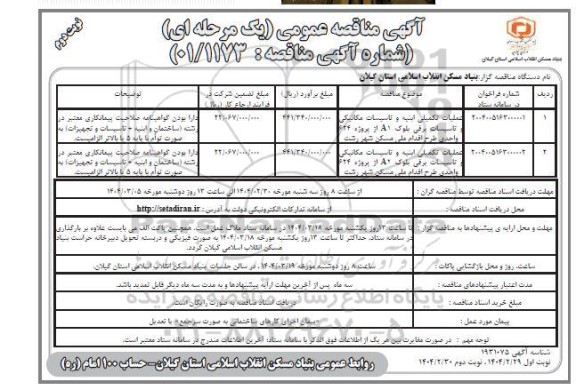 نوبت دوم
آگهی مناقصه عمومی (یک مرحله ای)
(شماره آگهی مناقصه : ۰۱/۱۱۷۳)
بنیاد مسکن انقلاب اسلامی استان گیلان
نام دستگاه مناقصه گزار: بنیاد مسکن انقلاب اسلامی استان گیلان
ردیف
شماره فراخوان در سامانه ستاد
موضوع مناقصه
مبلغ برآورد (ریال)
مبلغ تضمین شرکت در فرایند ارجاع کار (ریال)
توضیحات
۱
عملیات تکمیلی ابنیه و تاسیسات مکانیکی و تاسیسات برقی بلوک A۱ از پروژه ۶۲۴ واحدی طرح اقدام ملی مسکن شهر رشت
دارا بودن گواهینامه صلاحیت پیمانکاری معتبر در رشته (ساختمان و ابنیه + تاسیسات و تجهیزات) به صورت توأم با پایه ۵ یا بالاتر الزامیست.
۲
عملیات تکمیلی ابنیه و تاسیسات مکانیکی و تاسیسات برقی بلوک A۲ از پروژه ۶۲۴ واحدی طرح اقدام ملی مسکن شهر رشت
دارا بودن گواهینامه صلاحیت پیمانکاری معتبر در رشته (ساختمان و ابنیه + تاسیسات و تجهیزات) به صورت توأم با پایه ۵ یا بالاتر الزامیست.
مهلت دریافت اسناد مناقصه توسط مناقصه گران :
از ساعت ۸ روز سه شنبه مورخه ۱۴۰۴/۰۲/۳۰ الی ساعت ۱۳ روز دوشنبه مورخه ۱۴۰۴/۰۳/۰۵
محل دریافت اسناد مناقصه :
از سامانه تدارکات الکترونیکی دولت به آدرس : http://setadiran.ir
مهلت و محل ارایه ی پیشنهادها به مناقصه گزار :
تا ساعت ۱۳ روز یکشنبه مورخه ۱۴۰۴/۰۳/۱۸ در سامانه ستاد ملاک عمل است. همچنین پاکت الف می بایست علاوه بر بارگذاری در سامانه ستاد، حداکثر تا ساعت ۱۳ روز یکشنبه مورخه ۱۴۰۴/۰۳/۱۸ به صورت فیزیکی و دربسته تحویل دبیرخانه حراست بنیاد مسکن انقلاب اسلامی گیلان گردد.
ساعت، روز و محل بازگشایی پاکات :
ساعت ۹ روز دوشنبه مورخه ۱۴۰۴/۰۳/۱۹ ، در سالن جلسات بنیاد مسکن انقلاب اسلامی استان گیلان.
مدت اعتبار پیشنهادهای مناقصه :
سه ماه پس از آخرین مهلت ارایه پیشنهادها و به مدت سه ماه دیگر قابل تمدید باشد.
مبلغ خرید اسناد مناقصه :
دریافت اسناد مناقصه به صورت رایگان است.
پیمان مورد عمل :
«پیمان اجرای کارهای ساختمانی به صورت سرجمع» با تعدیل
توجه مهم : در صورت مغایرت بین هر یک از اطلاعات فوق الذکر با سامانه ستاد، آخرین اطلاعات مندرج در سامانه ستاد معتبر است.
شناسه آگهی ۱۹۳۱۰۷۵
نوبت اول ۱۴۰۴/۲/۲۹ نوبت دوم ۱۴۰۴/۲/۳۰
روابط عمومی بنیاد مسکن انقلاب اسلامی استان گیلان – حساب ۱۰۰ امام (ره)